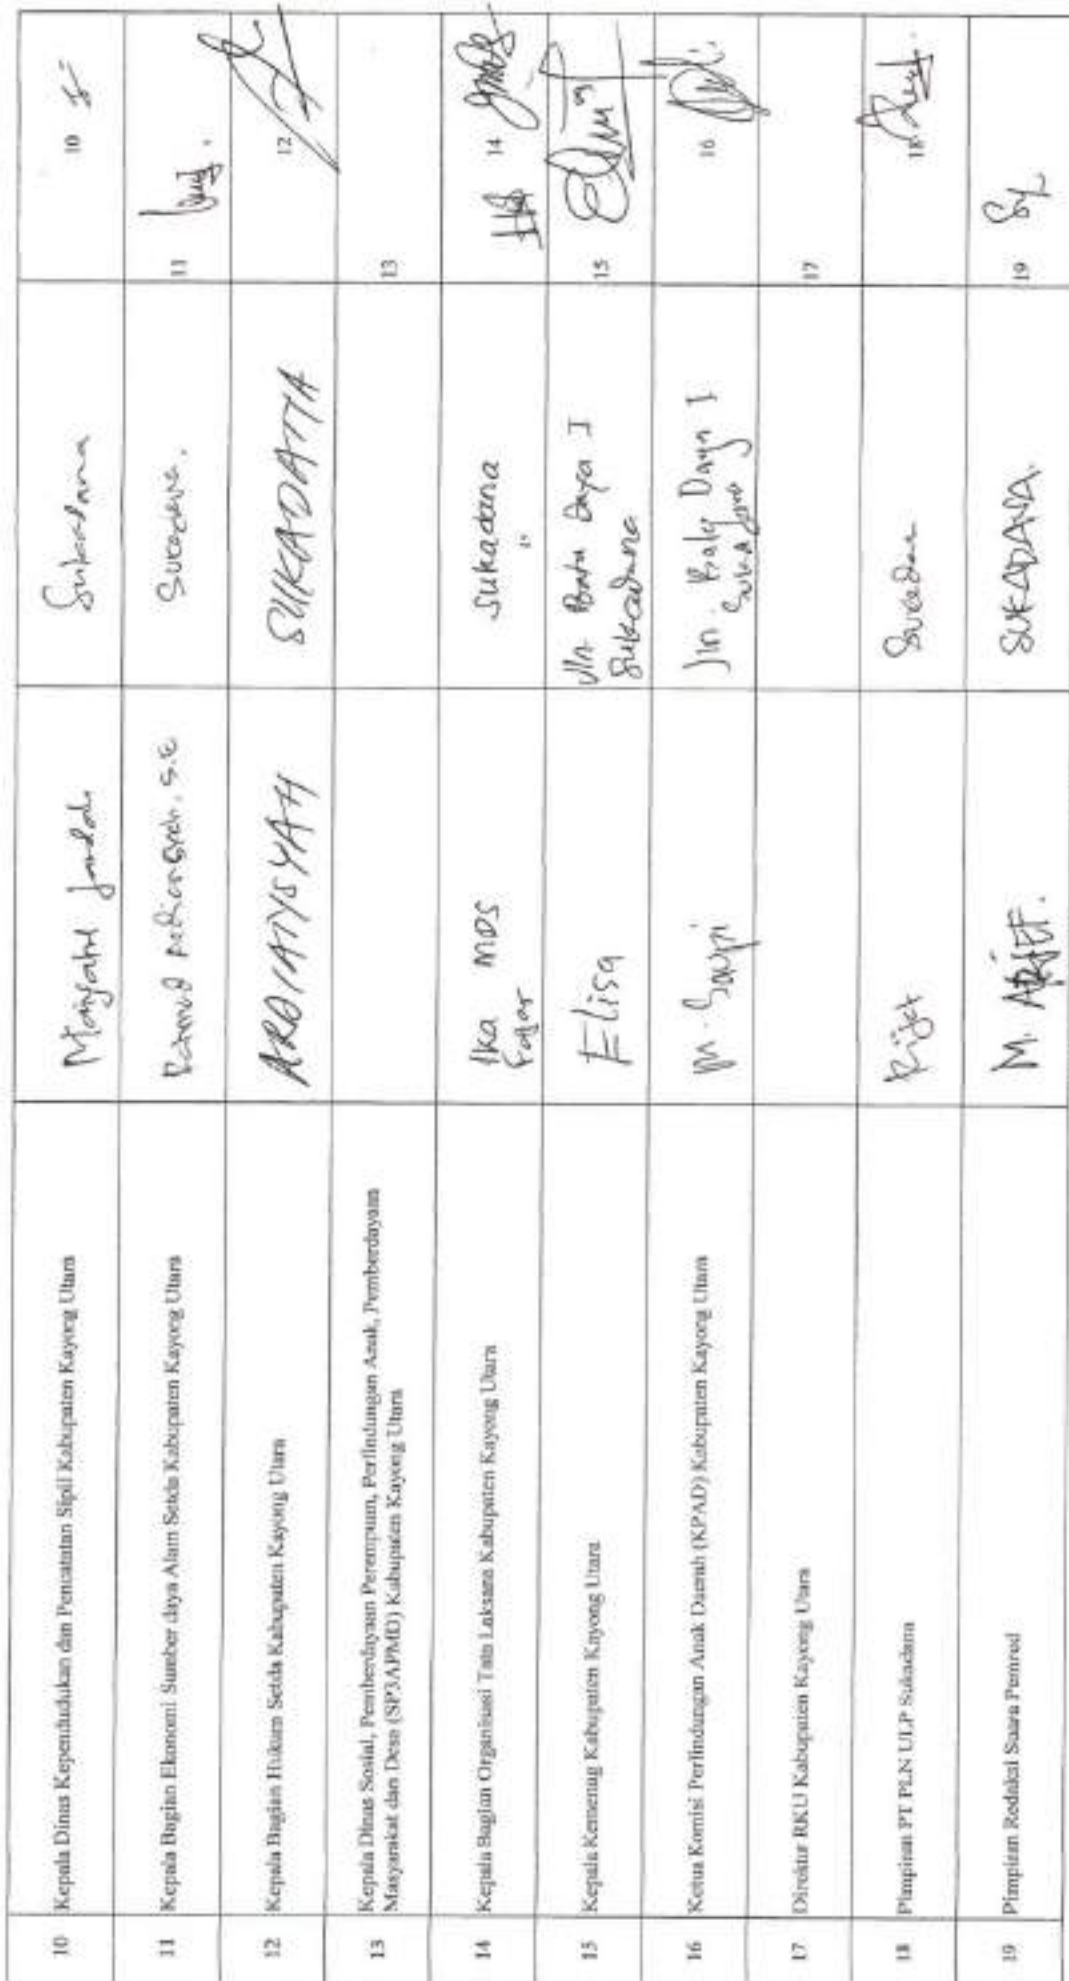 10 Kepala Dinas Kependudukan dan Pencatatan Sipil Kabupaten Kayong Utara Sukadana 10
11 Kepala Bagian Ekonomi Sumber daya Alam Setda Kabupaten Kayong Utara S.E 11
12 Kepala Bagian Hukum Setda Kabupaten Kayong Utara ARDIANSYAH SUKADANA 12
13 Kepala Dinas Sosial, Pemberdayaan Perempuan, Perlindungan Anak, Pemberdayaan 13
Masyarakat dan Desa (SP3APMD) Kabupaten Kayong Utara
14 Kepala Bagian Organisasi Tata Laksana Kabupaten Kayong Utara Ika MDS Sukadana 14
Fajar
15 Kepala Kemenag Kabupaten Kayong Utara Elisa Jln Batu Daya I 15
Sukadana
16 Ketua Komisi Perlindungan Anak Daerah (KPAD) Kabupaten Kayong Utara M. Sapi Jln. Daya I 16
17 Direktur RKU Kabupaten Kayong Utara 17
18 Pimpinan PT PLN ULP Sukadana 18
19 Pimpinan Redaksi Suara Pemred M. ARIEF. SUKADANA. 19